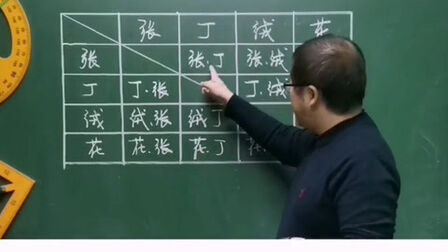 张 丁 绒 花
张 张.丁 张.绒
丁 丁.张 丁.绒
绒 绒.张 绒.丁
花 花.张 花.丁 花.